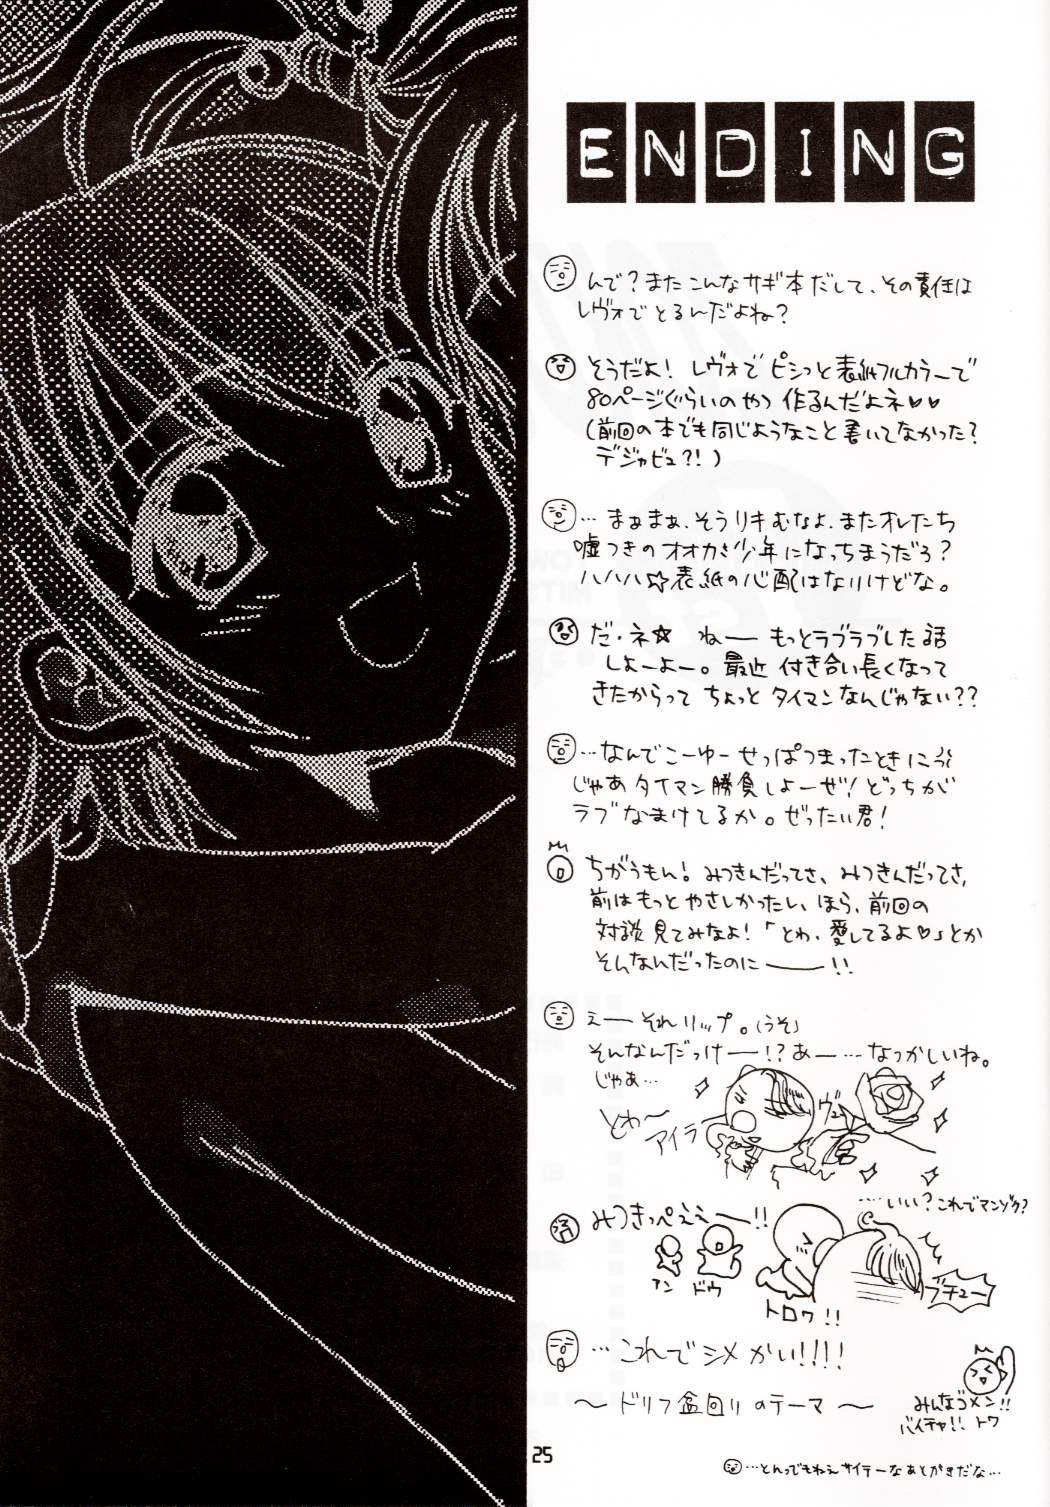 ENDING
んで?またこんなサギ本だして、その責任は
レヴォでとるんだよね?
そうだよ! レヴォでピシっと表紙フルカラーで
80ページぐらいのやつ作るんだよネ♡♡
(前回の本でも同じようなこと書いてなかった?
デジャビュ?!)
…まぁまぁ、そうリキむなよ、またオレたち
嘘つきのオオカミ少年になっちまうだろ?
ハハハ☆表紙の心配はないけどな。
だ・ネ☆ ねーもっとラブラブした話
しよーよー。最近付き合い長くなって
きたからって ちょっとタイマンなんじゃない??
…なんでこーゆーせっぱつまったときに
じゃあタイマン勝負しよーぜ!どっちが
ラブなまけてるか。ぜったい君!
ちがうもん!みつきんだってさ、みつきんだってさ、
前はもっとやさしかったし、ほら、前回の
対談見てみなよ!「とわ、愛してるよ♡」とか
そんなんだったのに――!!
えーそれリップ。(うそ)
そんなんだっけー!?あー…なつかしいね。
じゃぁ…
とわ〜
アイラ
ヴュ
……いい?これでマンゾク?
みつきっぺええー!!
アン ドゥ
トロワ!!
ブチュー
…これでシメかい!!!!
〜ドリフ盆回りのテーマ〜
みんなゴメン!!
バイチャ!! トワ
25
…とんでもねえサイテーなあとがきだな…